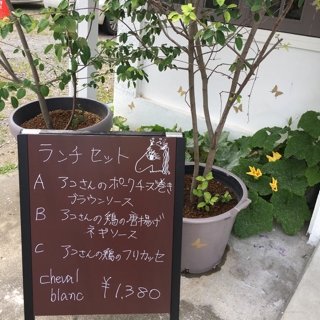 ランチ セット
A アコさんのポークチーズ巻き
ブラウンソース
B アコさんの鶏の唐揚げ
ネギソース
C アコさんの鶏のフリカッセ
cheval
blanc ￥1,380